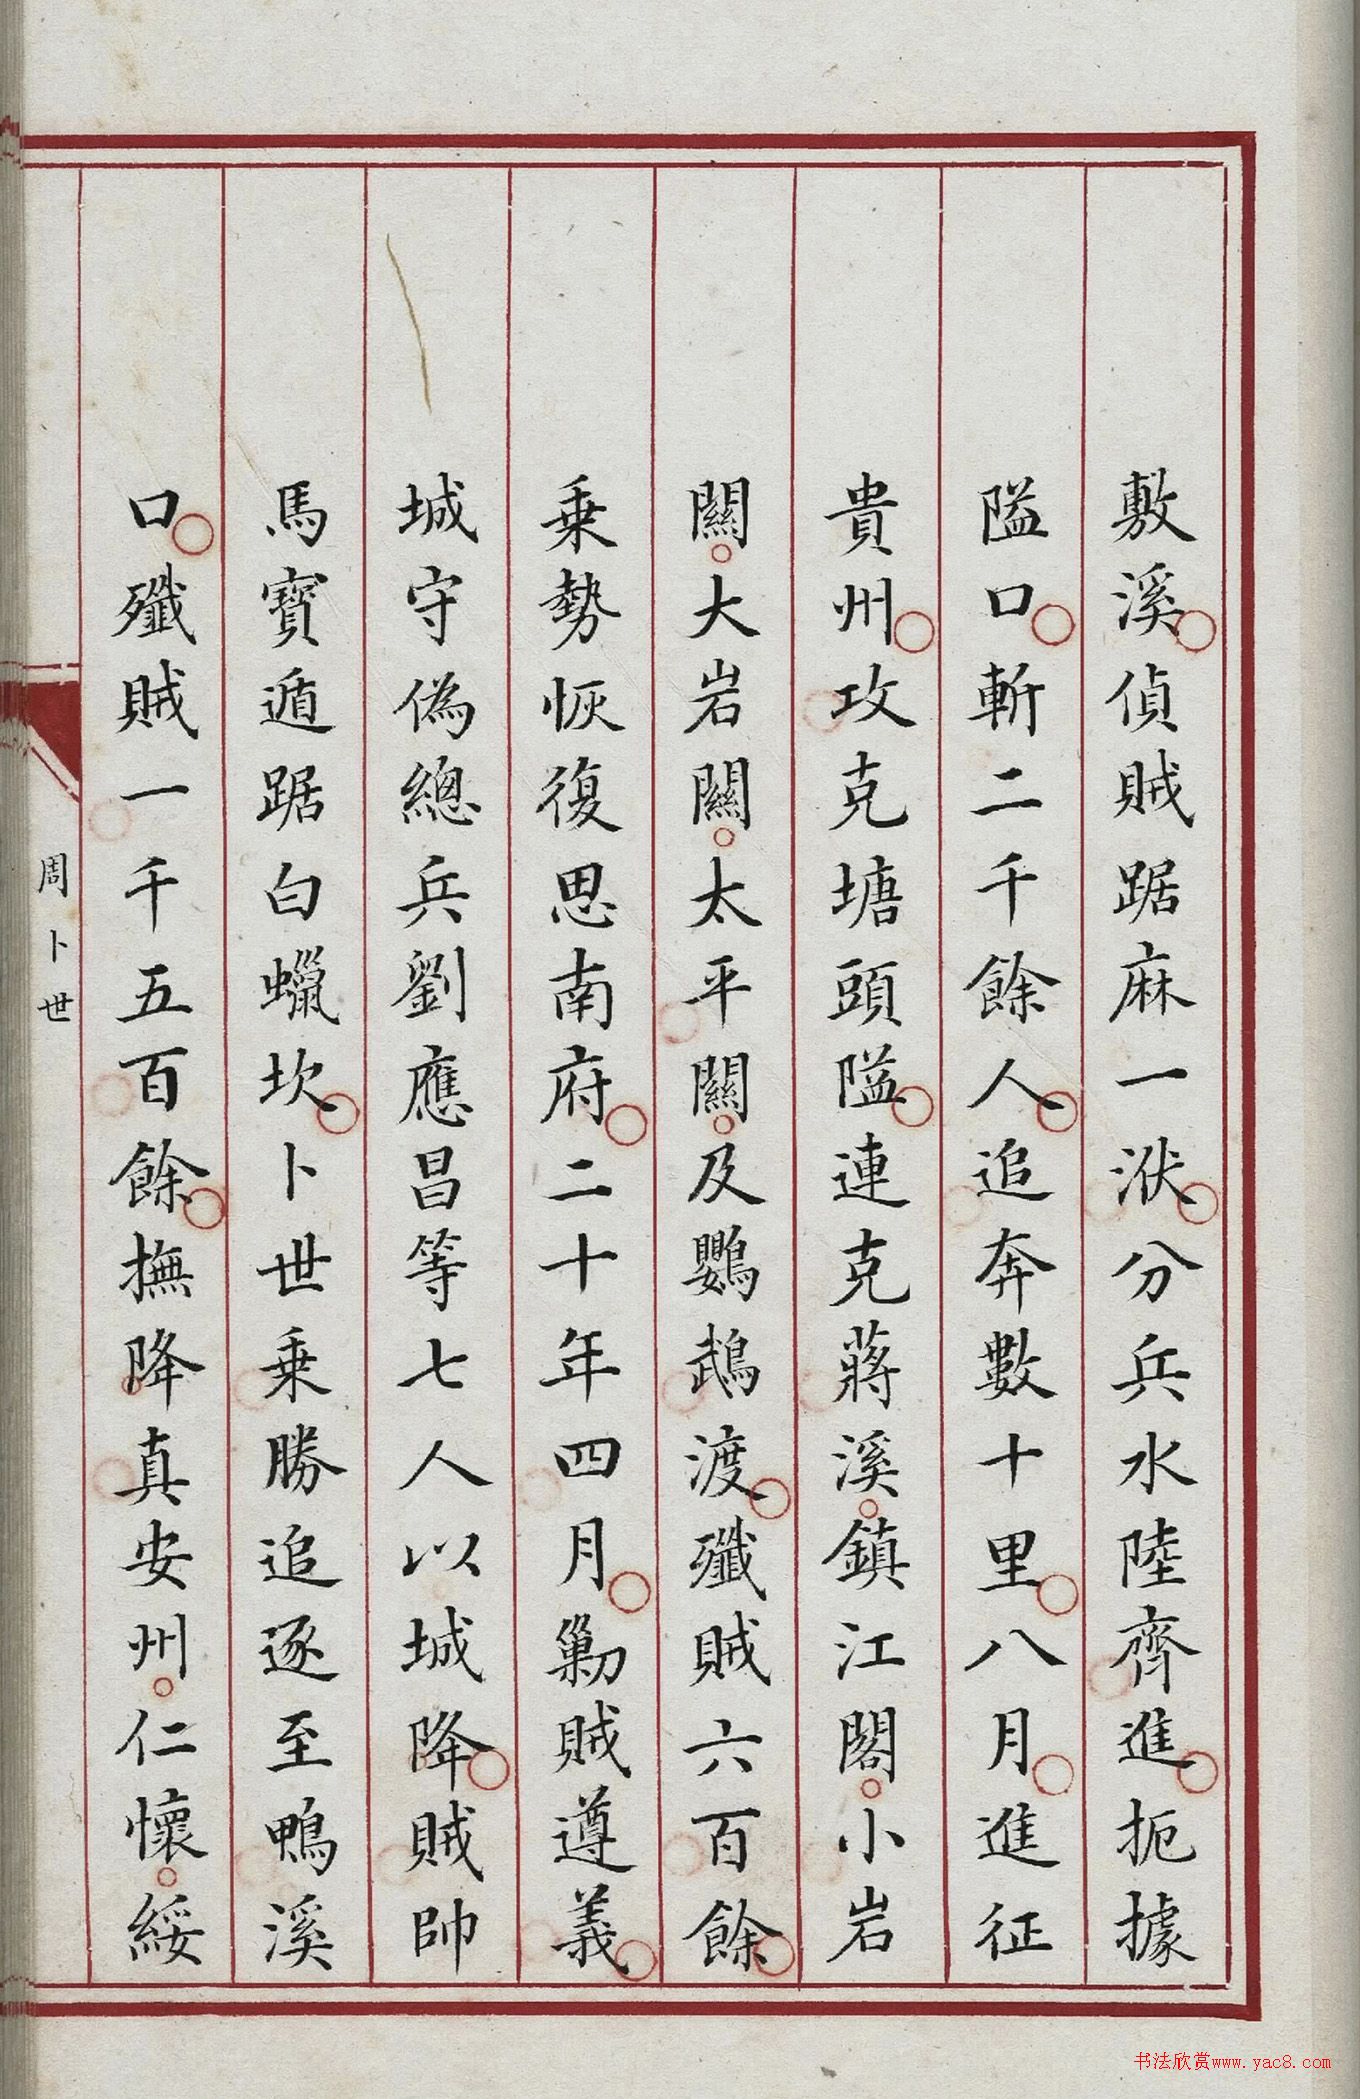 敷溪偵賊踞麻一洑分兵水陸齊進扼據
隘口斬二千餘人追奔數十里八月進征
貴州攻克塘頭隘連克蔣溪鎮江閣小岩
關大岩關太平關及鸚鵡渡殲賊六百餘
乗勢恢復思南府二十年四月剿賊遵義
城守偽總兵劉應昌等七人以城降賊帥
馬寶遁踞白蠟坎卜世乗勝追逐至鴨溪
口殲賊一千五百餘撫降真安州仁懷綏
周卜世
书法欣赏www.yac8.com